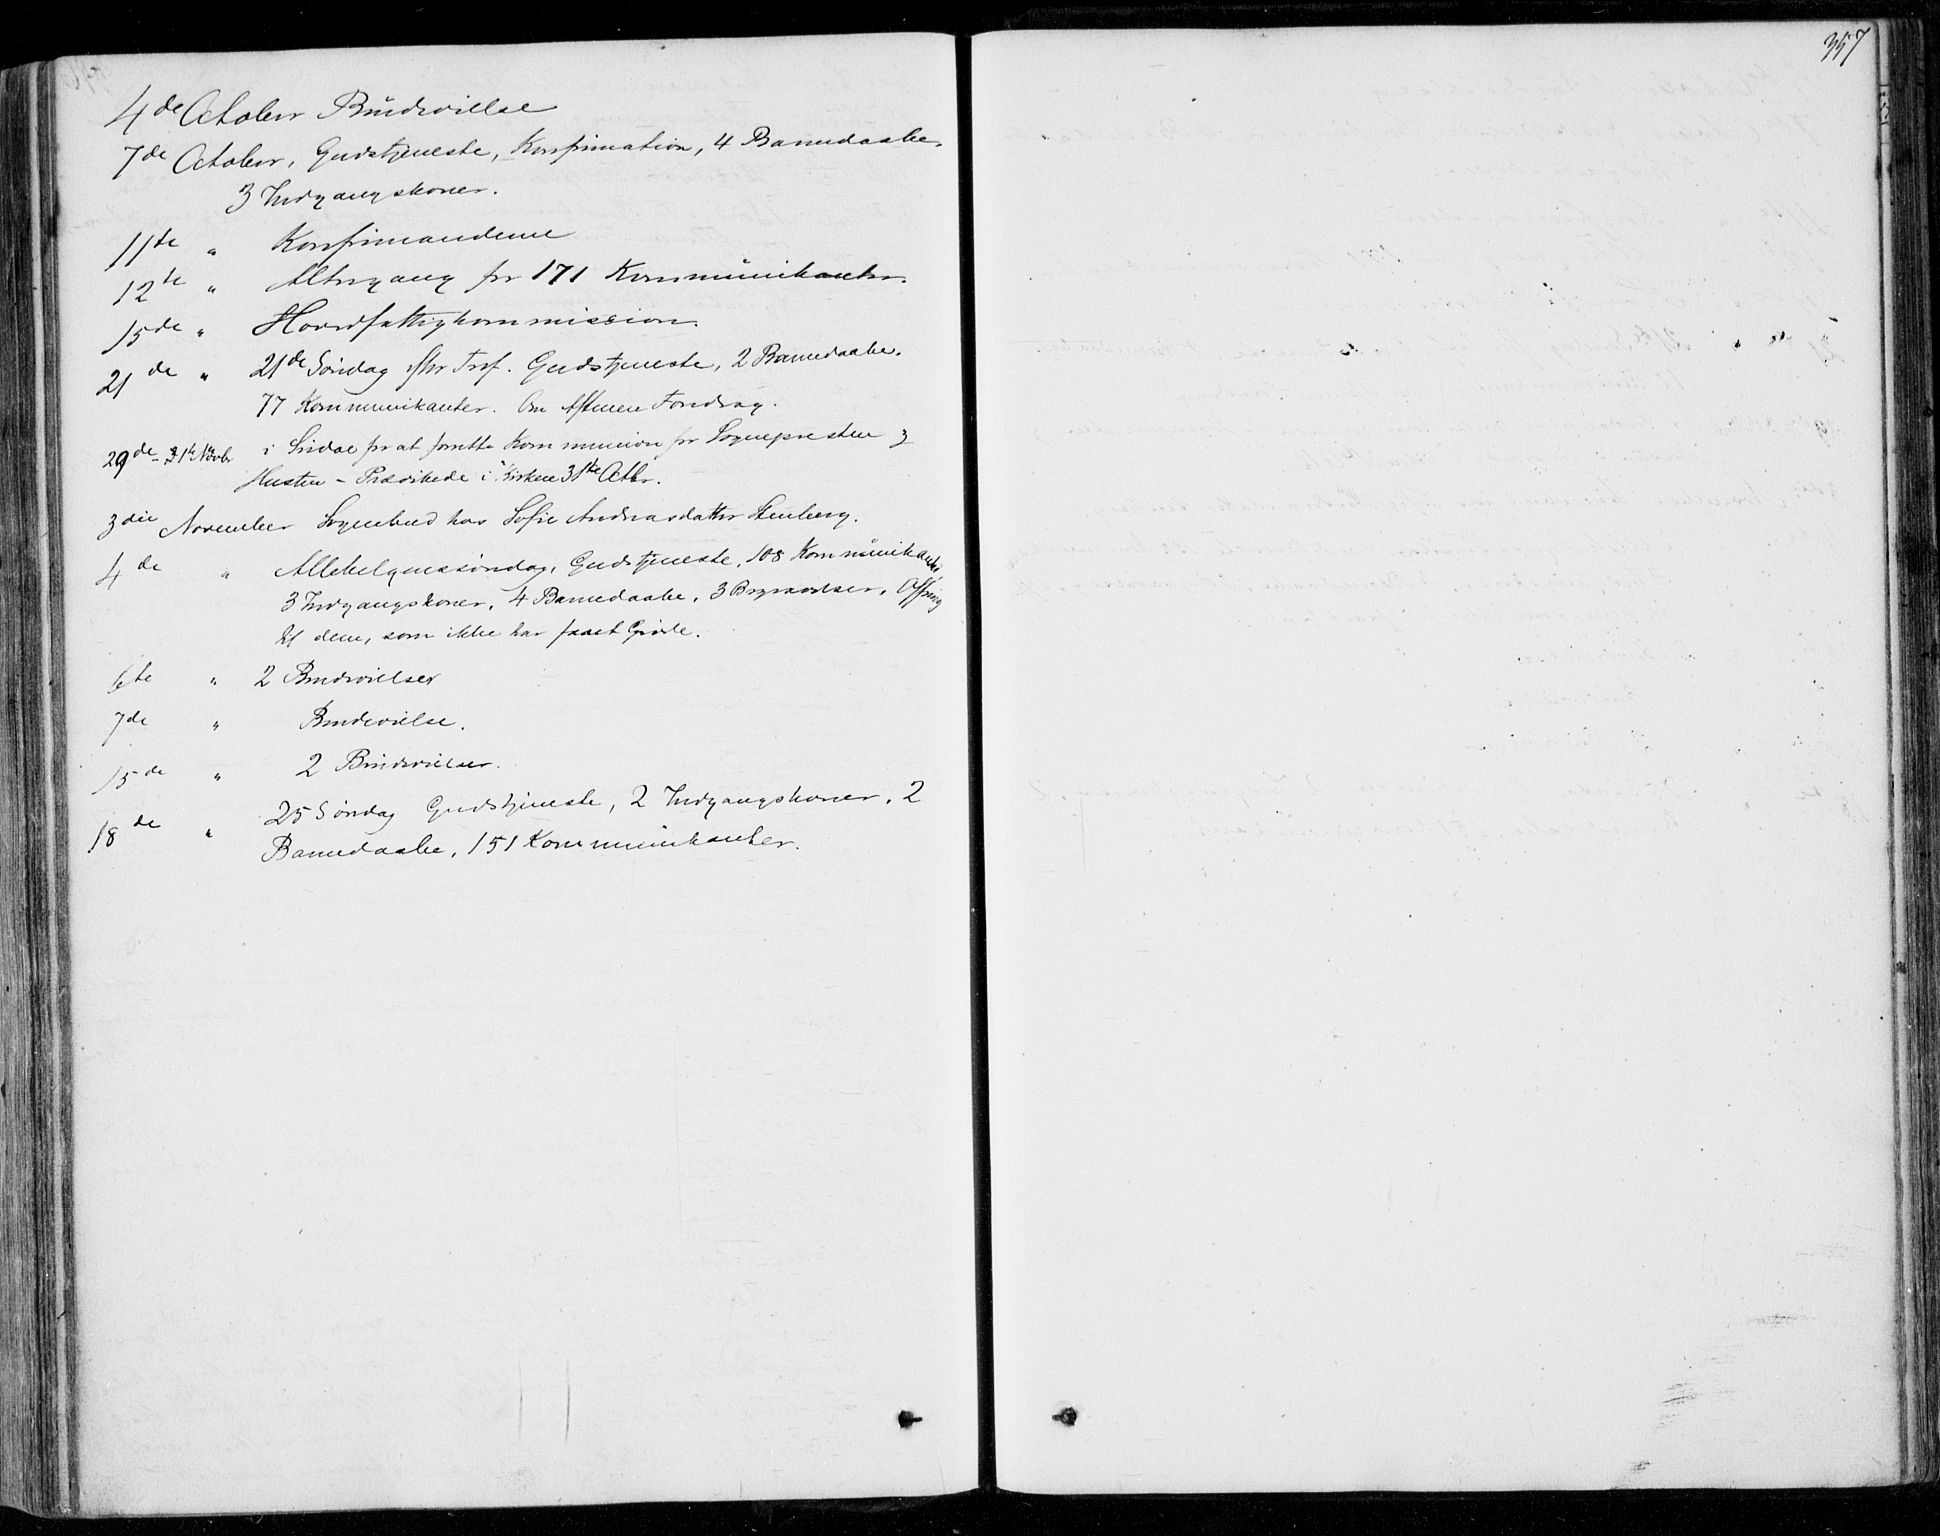 4de October Brudevielse
7de October, Gudstjeneste, Konfirmation, 4 Barnedaabe,
3 Indgangskoner.
11te " Konfirmanderne
12te " Altergang for 171 Kommunikanter.
15de " Hovedfattigkommission.
21de " 21de Søndag efter Tref. Gudstjeneste, 2 Barnedaabe.
77 Kommunikanter. Om Aftenen Foredrag.
29de - 31te Novbr i for at forrette Kommunion for Sognepresten &
Hustru - Prædikede i Kirken 31te Octbr.
3die November Sognebud hos Sofie Andreasdatter Stenberg.
4de " Allehelgenssøndag, Gudstjeneste, 108 Kommunikanter
3 Indgangskoner, 4 Barnedaabe, 3 Begravelser, Offring
til dem, som ikke har faaet Grøde.
6te " 2 Brudevielser
7de " Brudevielse.
15de " 2 Brudevielser.
18de " 25 Søndag Gudstjeneste, 2 Indgangskoner, 2
Barnedaabe, 151 Kommunikanter.
357